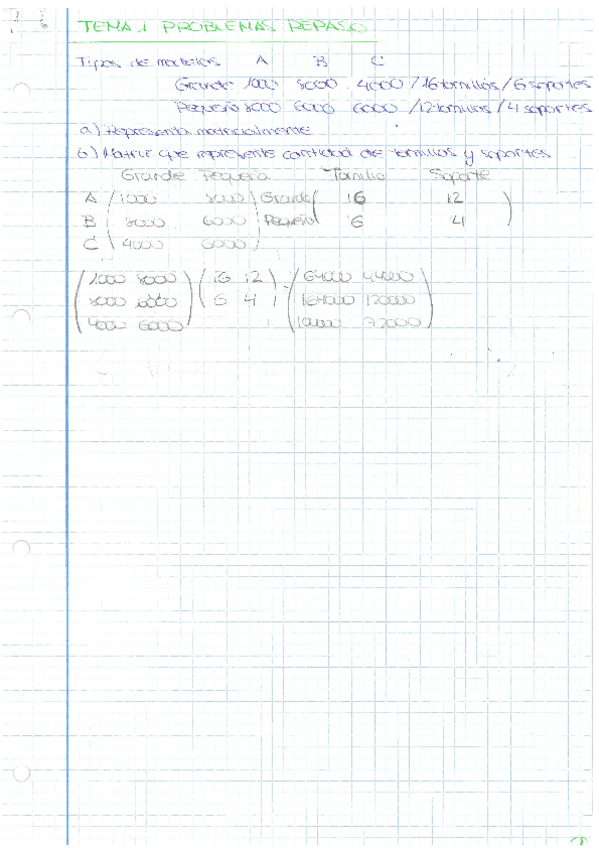 TEMA 1 PROBLEMAS REPASO
Tipos de A B C
Grande 1000 8000 4000 / 16 tornillos / 6 soportes
Pequeño 8000 6000 6000 / 12 tornillos / 4 soportes
a) Representa matricialmente
b) Matriz que represente cantidad de tornillos y soportes
Grande Pequeña Tornillo Soporte
A 1000 8000 Grande 16 12
B 8000 6000 Pequeño 6 4
C 4000 6000
1000 8000 16 12 64000 44000
8000 6000 6 4 164000 120000
4000 6000 72000